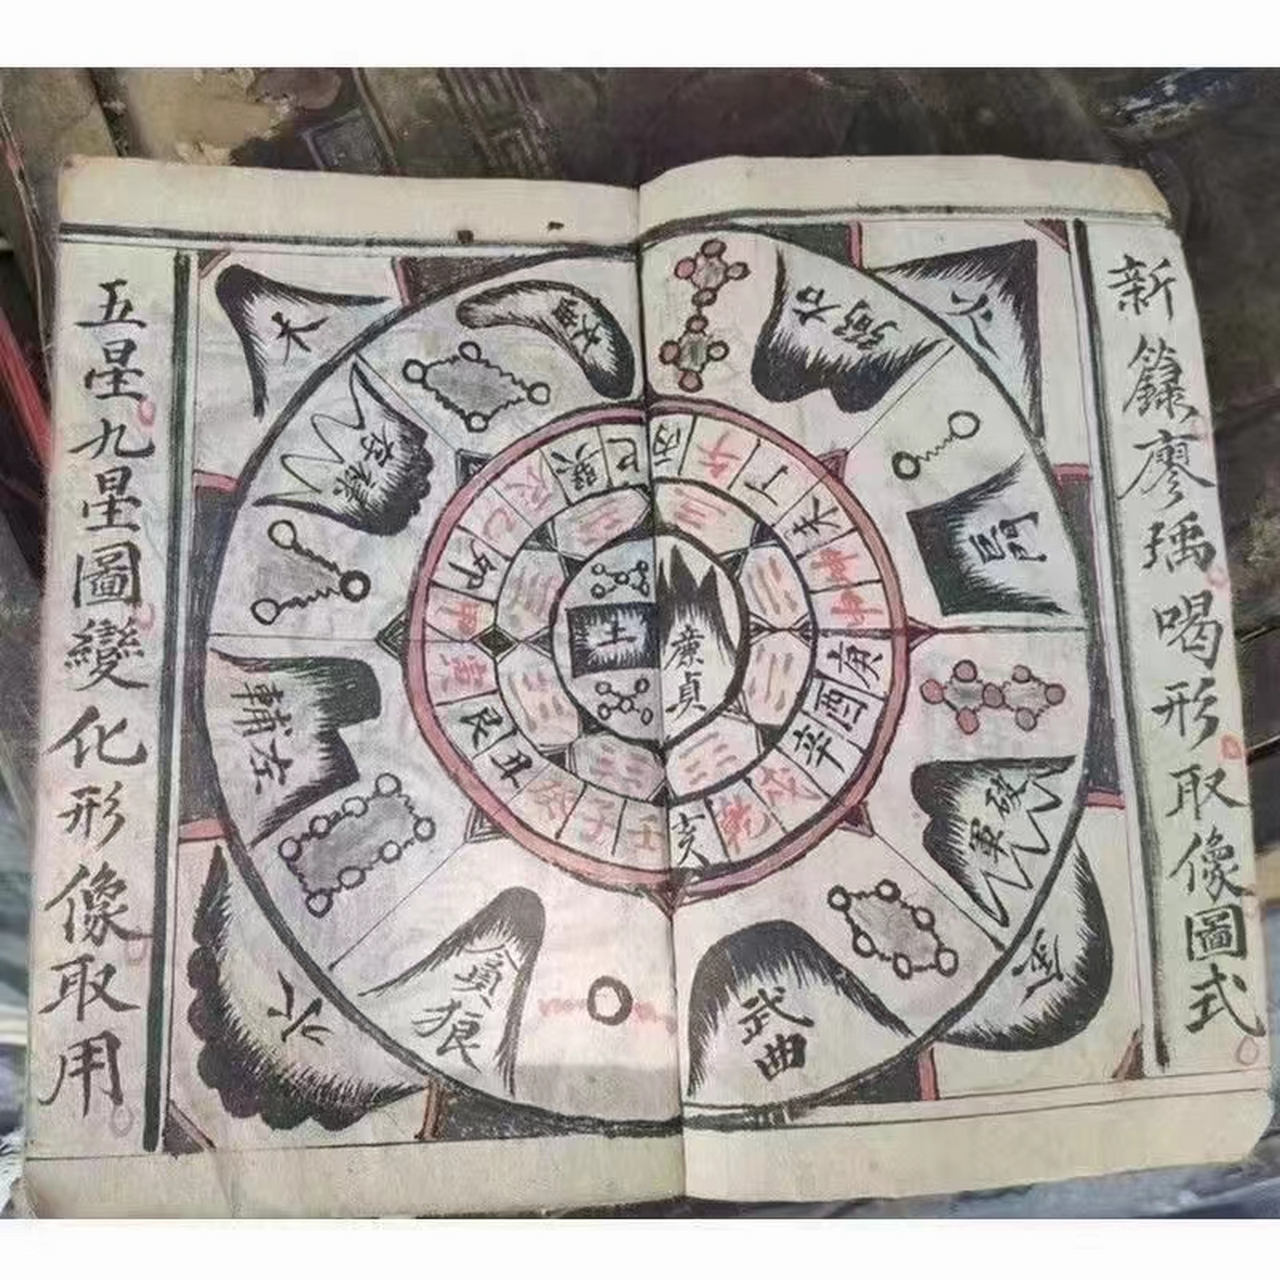 新籙廖瑀喝形取像圖式
五星九星圖變化形像取用
木
火
金
水
土
廉貞
右弼
巨門
破軍
武曲
貪狼
左輔
祿存
巳
丙
午
丁
未
庚
酉
辛
戌
乾
亥
壬
子
癸
丑
艮
寅
甲
卯
乙
辰
巽